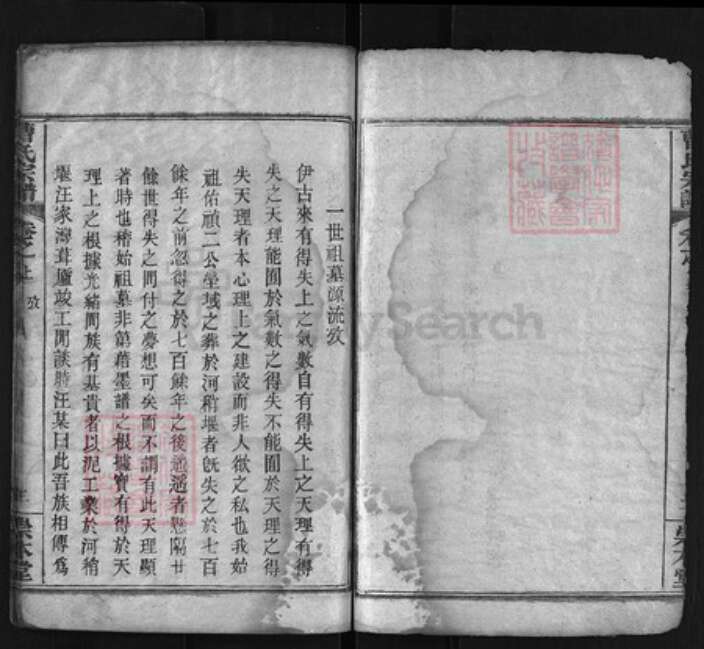 一世祖墓源流攷
伊古來有得失上之氣數自有得失上之天理有得
失之天理能囿於氣數之得失不能囿於天理之得
失天理者本心理上之建設而非人欲之私也我始
祖佑顧二公塋域之葬於河稍堰者旣失之於七百
餘年之前忽得之於七百餘年之後遙遙者懸隔廿
餘世得失之間付之夢想可矣而不謂有此天理顯
著時也稽始祖墓非第藉墨譜之根據實有得於天
理上之根據光緒間族有基貴者以泥工業於河稍
堰汪家灣葺廬竣工閒談時汪某曰此吾族相傳爲
曹氏宗譜
卷之上
攷
崇本堂
曹氏宗譜
崇本堂
FamilySearch